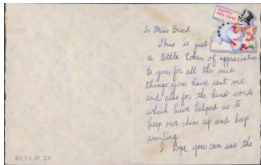 To Miss Breed,
This is just
a little token of appreciation
to you for all the nice
things you have sent me
and also for the kind words
which have helped us to
keep our chin up and keep
smiling.
I hope you can use the